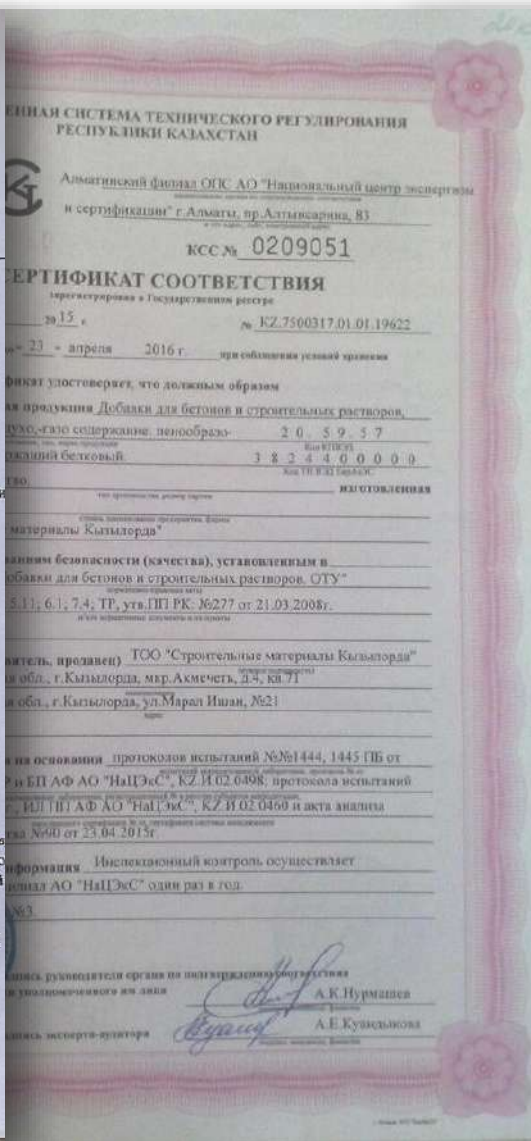 ЕННАЯ СИСТЕМА ТЕХНИЧЕСКОГО РЕГУЛИРОВАНИЯ
РЕСПУБЛИКИ КАЗАХСТАН
Алматинский филиал ОПС АО "Национальный центр экспертизы
и сертификации" г.Алматы, пр.Алтынсарина, 83
КСС № 0209051
ЕРТИФИКАТ СООТВЕТСТВИЯ
зарегистрирован в Государственном реестре
20 15 г. № KZ.7500317.01.01.19622
23 - апреля 2016 г. при соблюдении условий хранения
фикат удостоверяет, что должным образом
ая продукция Добавки для бетонов и строительных растворов,
духо,-газо содержание, пенообразо- 20.59.57
Код КПВЭД
ржащий белковый. 3824400000
изготовленная
материалы Кызылорда"
ваниям безопасности (качества), установленным в
обавки для бетонов и строительных растворов. ОТУ"
5.11; 6.1; 7.4; ТР, утв.ПП РК: №277 от 21.03.2008г.
витель, продавец) ТОО "Строительные материалы Кызылорда"
я обл., г.Кызылорда, мкр.Акмечеть, д.4, кв.71
я обл., г.Кызылорда, ул.Марал Ишан, №21
адрес
а на основании протоколов испытаний №№1444, 1445 ПБ от
Р и БП АФ АО "НаЦЭкС", KZ.И.02.0498; протокола испытаний
ИЛ ПП АФ АО "НаЦЭкС", KZ.И.02.0460 и акта анализа
тва №90 от 23.04.2015г.
нформация Инспекционный контроль осуществляет
филиал АО "НаЦЭкС" один раз в год.
№3.
дпись руководителя органа по подтверждению соответствия
и уполномоченного им лица А.К.Нурмашев
дпись эксперта-аудитора А.Е.Куандыкова